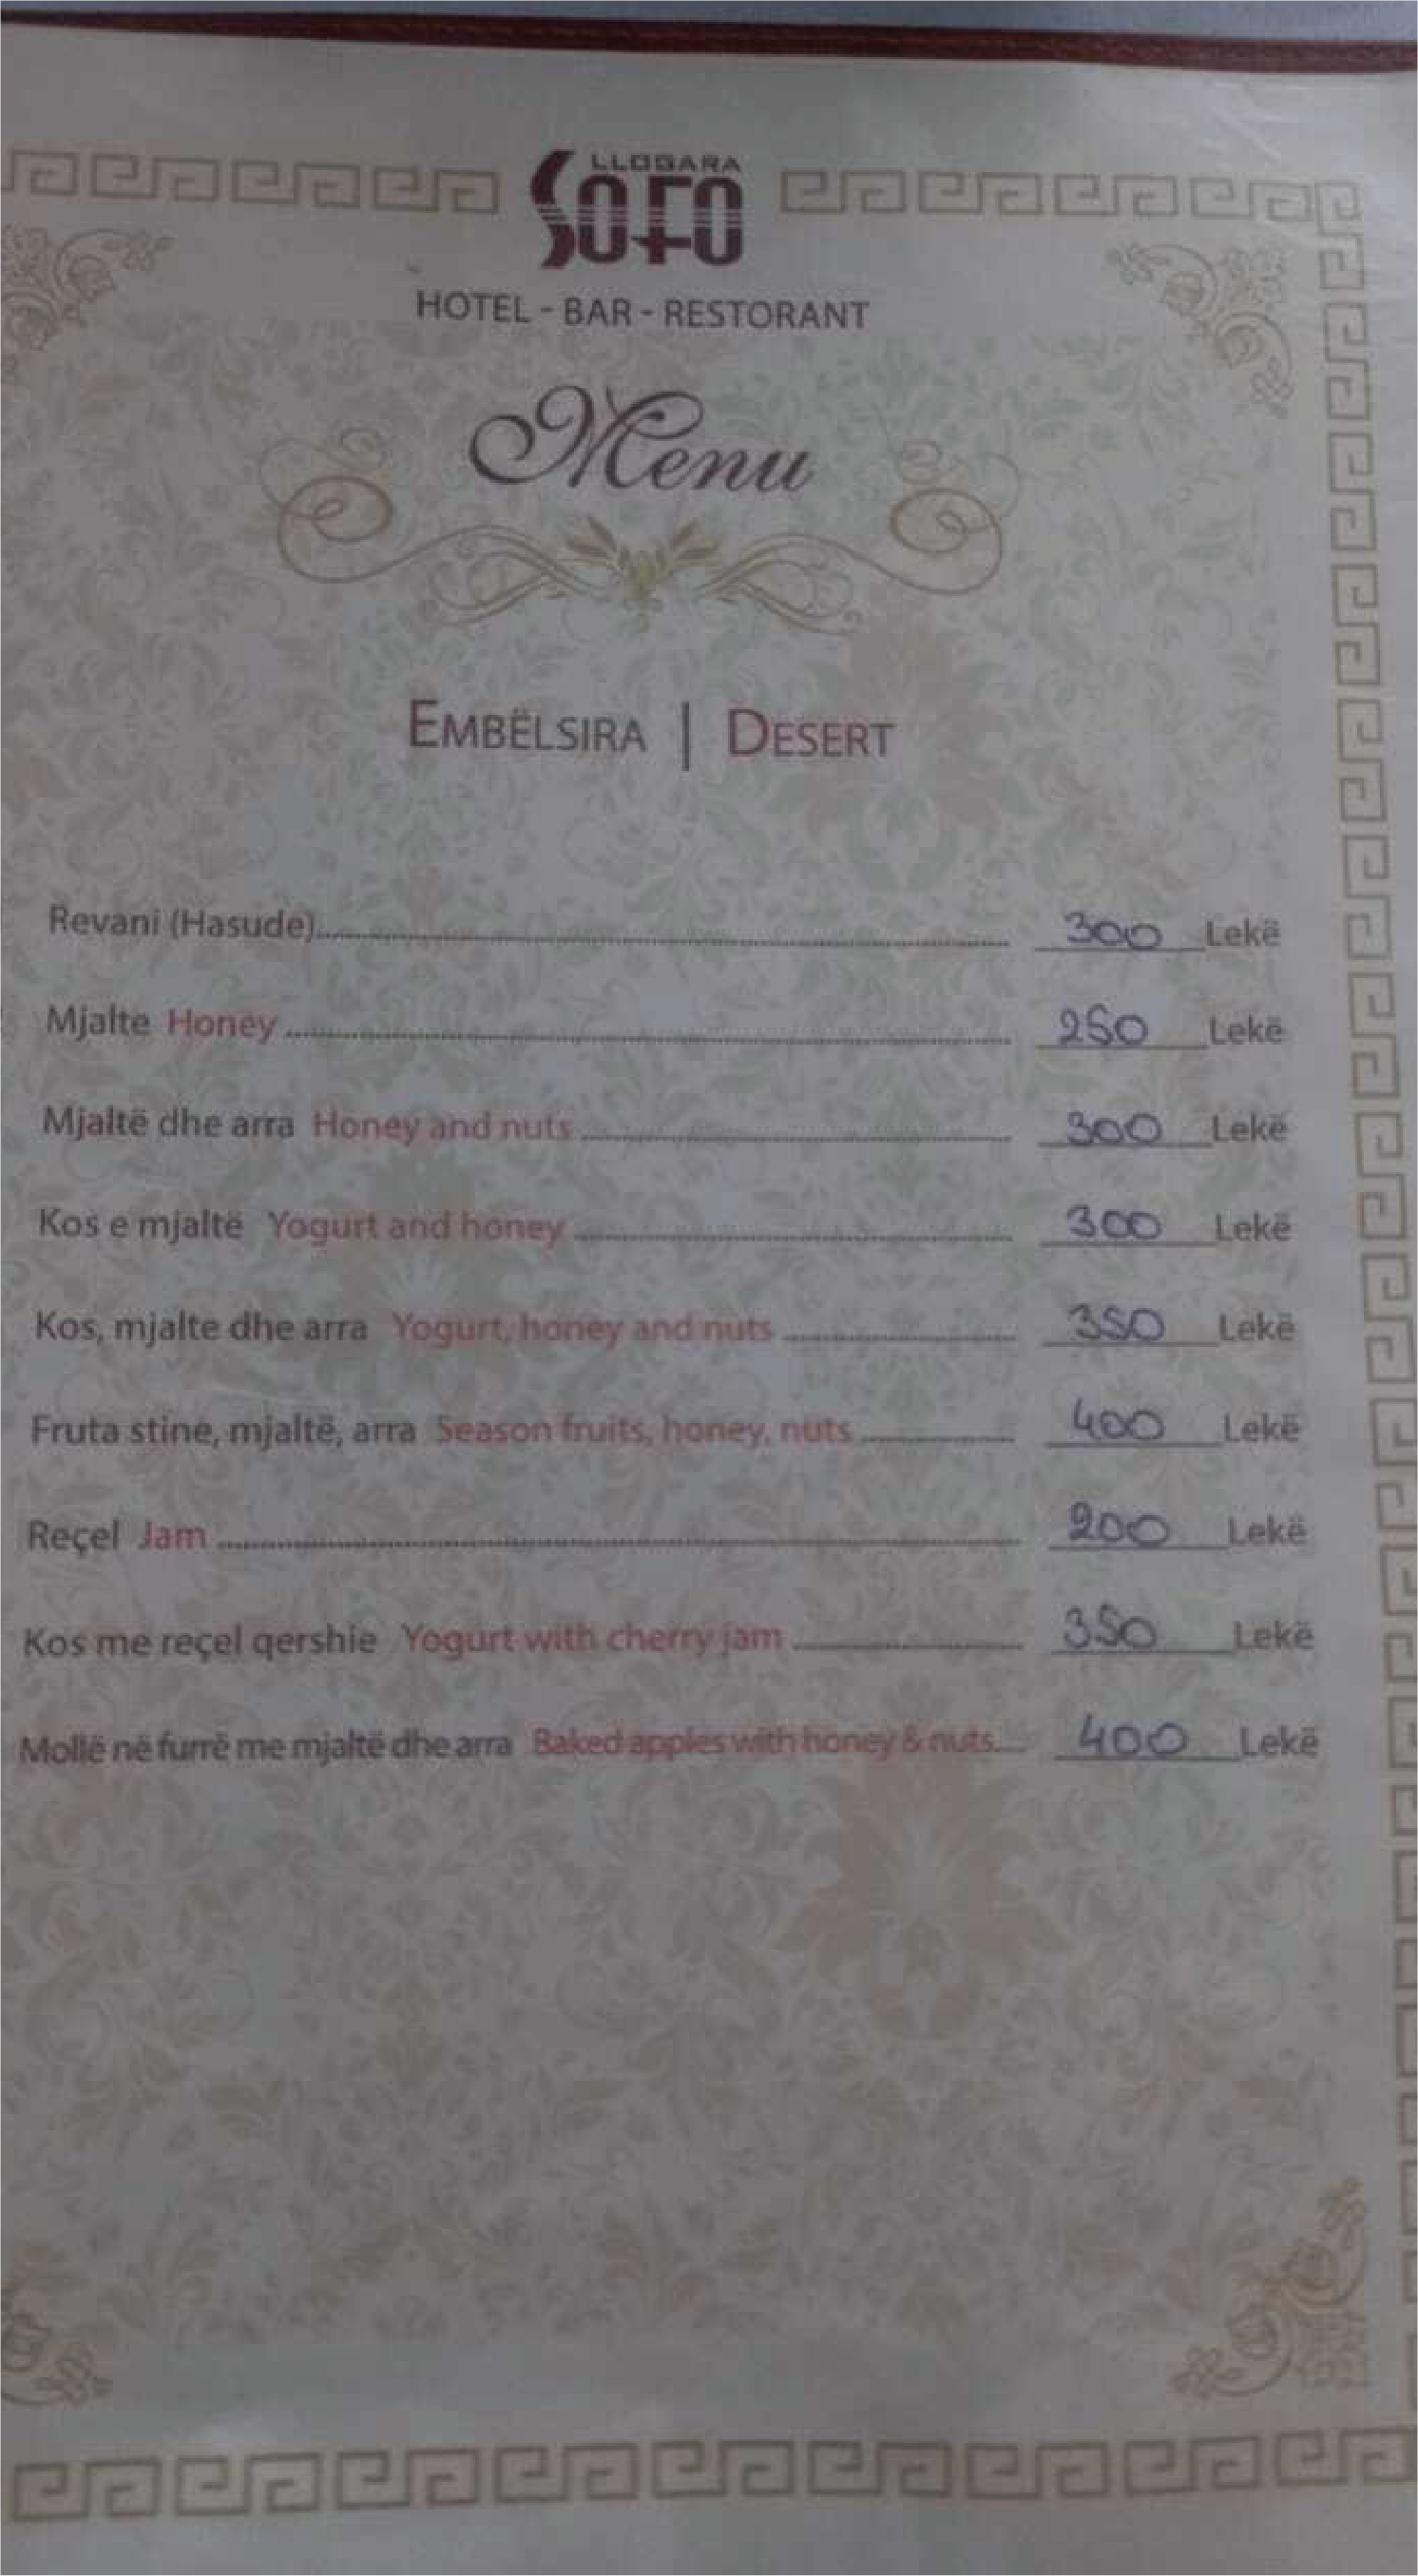 LLOGARA
SOFO
HOTEL - BAR - RESTORANT
Menu
EMBËLSIRA | DESERT
Revani (Hasude)........ 300 Lekë
Mjalte Honey........ 250 Lekë
Mjaltë dhe arra Honey and nuts........ 300 Lekë
Kos e mjaltë Yogurt and honey........ 300 Lekë
Kos, mjalte dhe arra Yogurt, honey and nuts........ 350 Lekë
Fruta stine, mjaltë, arra Season fruits, honey, nuts........ 400 Lekë
Reçel Jam........ 200 Lekë
Kos me reçel qershie Yogurt with cherry jam........ 350 Lekë
Mollë në furrë me mjaltë dhe arra Baked apples with honey & nuts.... 400 Lekë